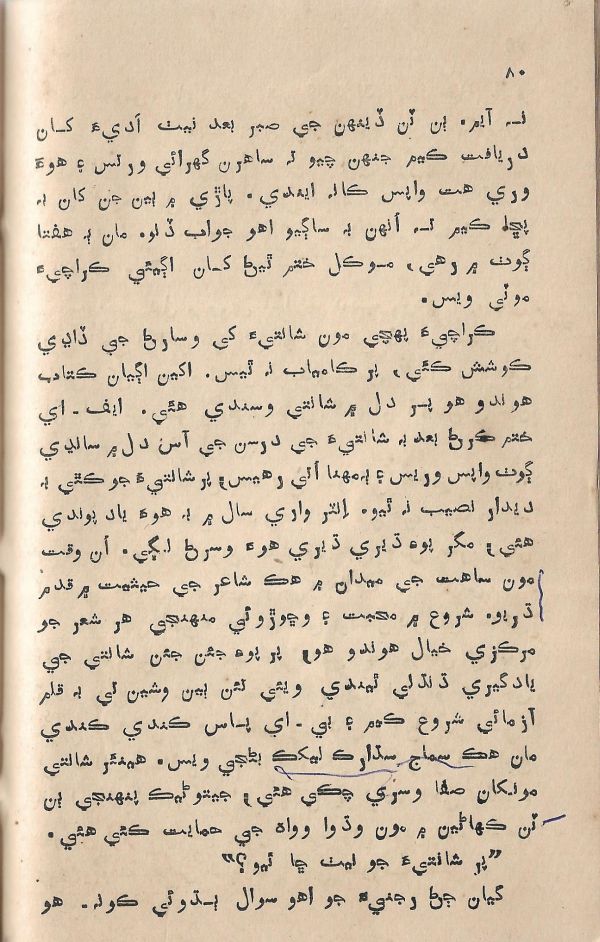 ۸۰
نہ آيم. ٻن ٽن ڏينهن جي صبر بعد نيٺ اَديءَ کان
دريافت ڪيم جنهن چيو تہ ساهرن گهرائي ورتس ۽ هوءَ
وري هت واپس ڪانہ ايندي. پاڙي ۾ ٻين جن کان بہ
پڇا ڪيم تہ اُنهن بہ ساڳيو اهو جواب ڏنو. مان ٻہ هفتا
ڳوٺ ۾ رهي، موڪل ختم ٿيڻ کان اڳيئي ڪراچيءَ
موٽي ويس.
ڪراچيءَ پهچي مون شانتيءَ کي وسارڻ جي ڏاڍي
ڪوشش ڪئي، پر ڪامياب نہ ٿيس. اکين اڳيان ڪتاب
هوندو هو پر دل ۾ شانتي وسندي هئي. ايف - اي
ختم ڪرڻ بعد بہ شانتيءَ جي درسن جي آس دل ۾ سانڍي
ڳوٺ واپس وريس ۽ ٻہ مهنا اُتي رهيس، پر شانتيءَ جو ڪٿي بہ
ديدار نصيب نہ ٿيو. اِنٽر واري سال ۾ بہ هوءَ ياد پوندي
هئي، مگر پوءِ ڌيري ڌيري هوءَ وسرڻ لڳي. اُن وقت
مون ساهت جي ميدان ۾ هڪ شاعر جي حيثيت ۾ قدم
ڌريو. شروع ۾ محبت ۽ وڇوڙو ئي منهنجي هر شعر جو
مرڪزي خيال هوندو هو، پر پوءِ جئن جئن شانتي جي
يادگيري ڌنڌلي ٿيندي ويئي تئن ٻين وشين تي بہ قلم
آزمائي شروع ڪيم ۽ بي - اي پاس ڪندي ڪندي
مان هڪ سماج سڌارڪ ليکڪ بڻجي ويس. هينئر شانتي
مونکان صفا وسري چڪي هئي، جيتوڻيڪ پنهنجي ٻن
ٽن ڪهاڻين ۾ مون وڌوا وواهہ جي حمايت ڪئي هئي.
”پر شانتيءَ جو نيٺ ڇا ٿيو؟“
گيان ڄڻ رجنيءَ جو اهو سوال ٻڌوئي ڪونہ - هو